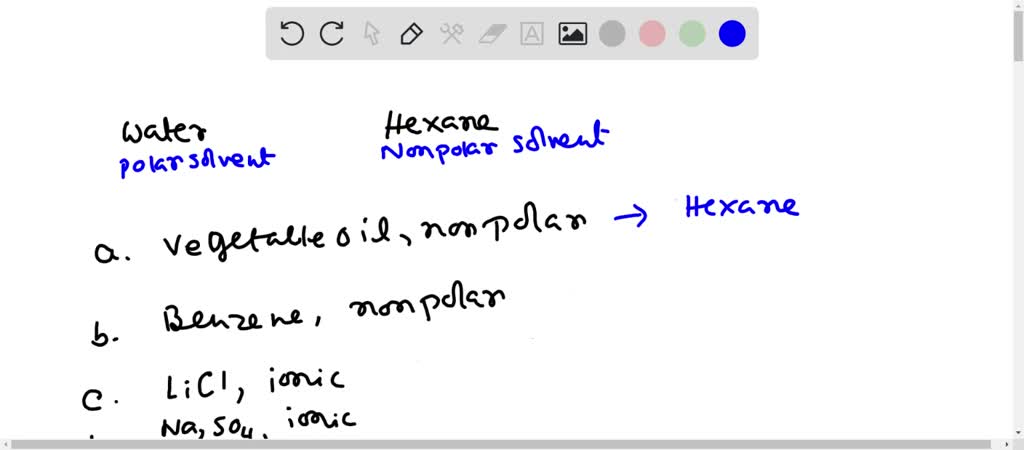 water Hexane
polar solvent Nonpolar solvent
a. vegetable oil, nonpolar → Hexane
b. Benzene, nonpolar
c. LiCl, ionic
Na₂SO₄, ionic